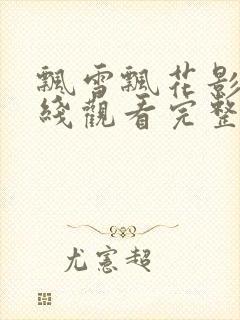 飄雪飄花影
綫觀看完整
尤憲超